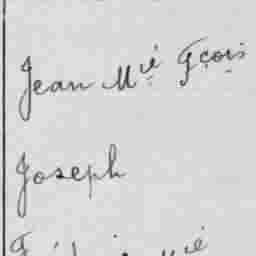 Jean Mié Fçois
Joseph